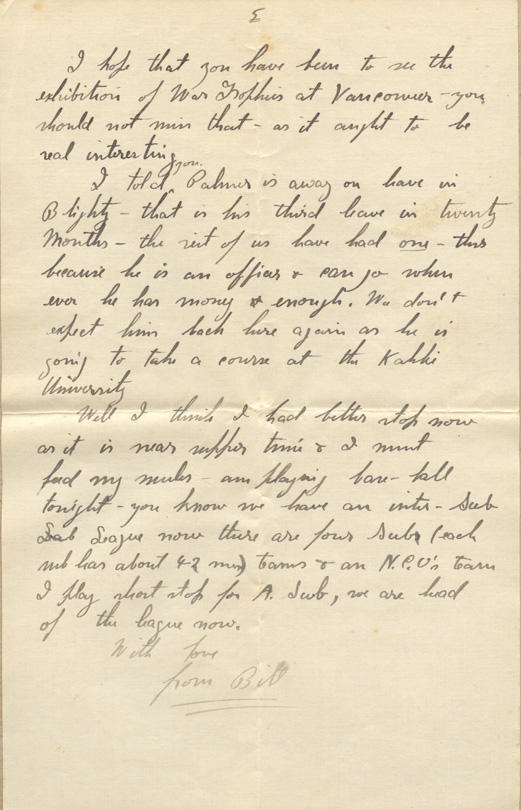 5
I hope that you have been to see the
exhibition of War Trophies at Vancouver - you
should not miss that - as it aught to be
real interesting.
you.
I told Palmer is away on leave in
Blighty - that is his third leave in twenty
months - the rest of us have had one - this
because he is an officer & can go when
ever he has money & enough. We don't
expect him back here again as he is
going to take a course at the Kahki
University
Well I think I had better stop now
as it is near supper time & I must
feed my mules - am playing base-ball
tonight - you know we have an inter-Sub
League now there are four Subs (each
sub has about 42 men) teams & an N.C.O's team
I play short stop for A. Sub, we are head
of the league now.
With love
from Bill